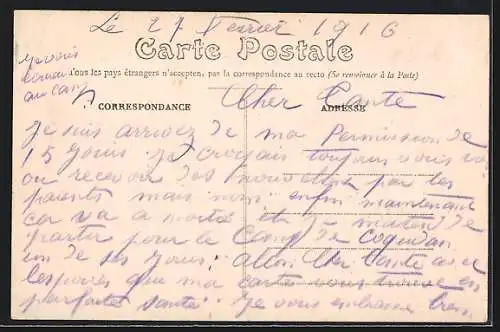 Le 27 Fevrier 1916
Carte Postale
Tous les pays étrangers n'acceptent pas la correspondance au recto (Se renseigner à la Poste)
au camp
CORRESPONDANCE
ADRESSE
Cher Tante
Je suis arrivez de ma Permission de
15 Jours je croyais toujours vous voi
ou recevoir des nouvelles par les
parents mais non enfin maintenant
car va a notre et de
partir pour le Camp de Coquidan
un de ses Jours. Allon Cher Tante avec
l'espoires que ma carte vous trouve en
parfaite santé. Je vous embrasse bien